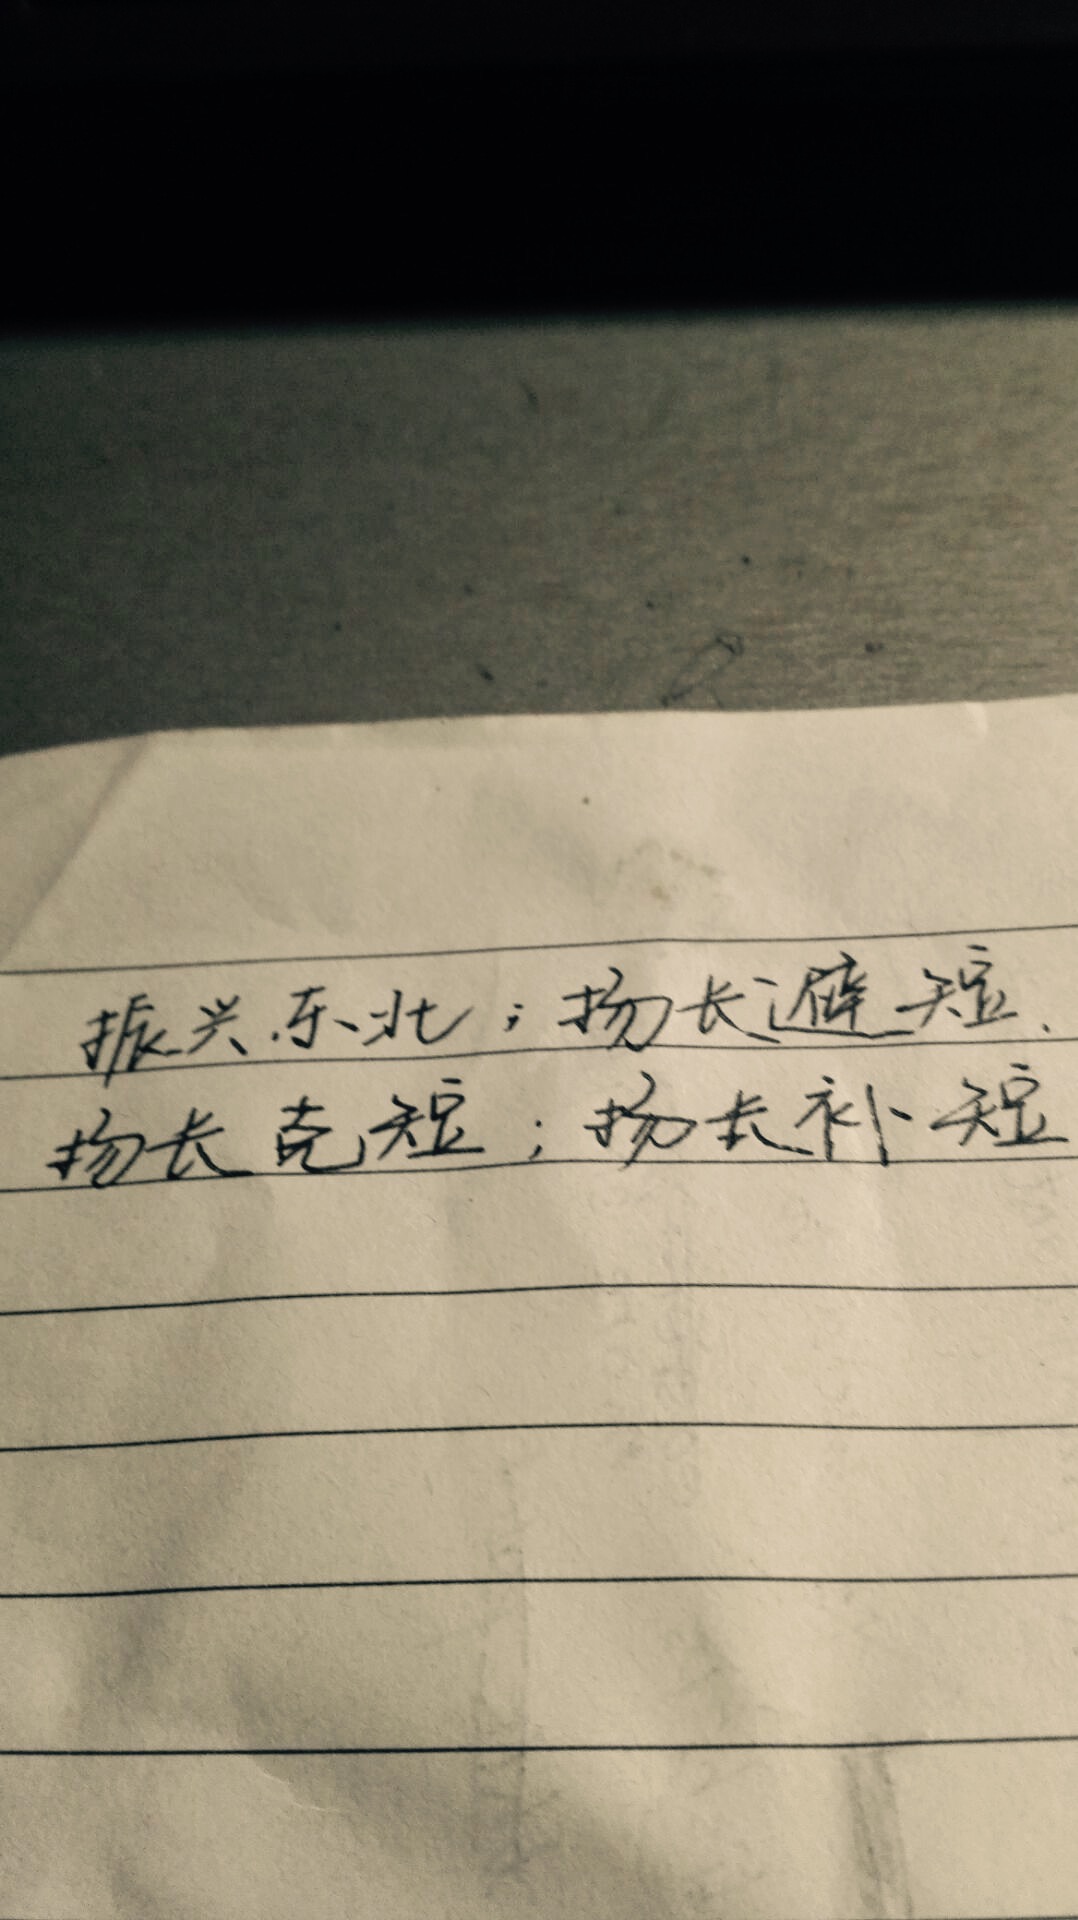 振兴东北；扬长避短.
扬长克短；扬长补短